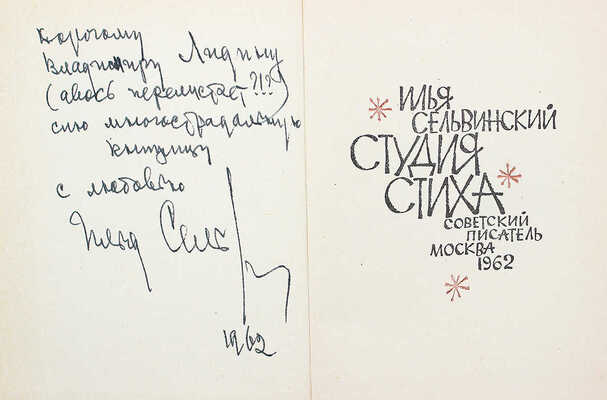 Дорогому
Владимиру Лидину
(авось перелистает?!?)
сию многострадальную
книжицу
с любовью
Илья Сельв
1962
ИЛЬЯ
СЕЛЬВИНСКИЙ
СТУДИЯ
СТИХА
СОВЕТСКИЙ
ПИСАТЕЛЬ
МОСКВА
1962